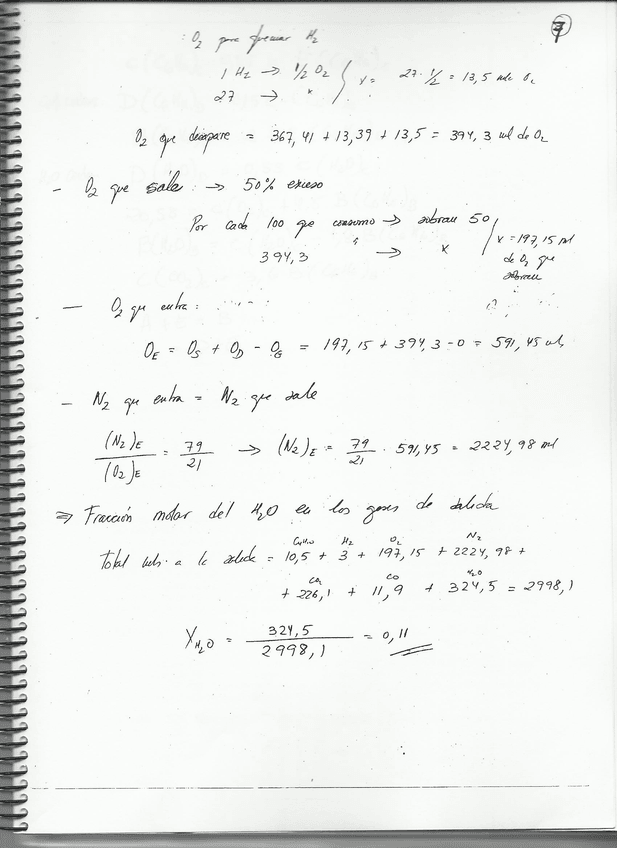 7
: O₂ para quemar H₂
1 H₂ → 1/2 O₂
27 → x
x = 27 · 1/2 = 13,5 mls de O₂
O₂ que desapare = 367,41 + 13,39 + 13,5 = 394,3 ml de O₂
- O₂ que sale : → 50% exceso
Por cada 100 que consumo → sobran 50
394,3 → x
x = 197,15 ml
de O₂ que
sobran
- O₂ que entra :
O_E = O_S + O_D - O_G = 197,15 + 394,3 - 0 = 591,45 mls
- N₂ que entra = N₂ que sale
(N₂)_E / (O₂)_E = 79/21 → (N₂)_E = 79/21 · 591,45 = 2224,98 ml
⇒ Fracción molar del H₂O en los gases de salida
H₂ O₂ N₂
Total mls. a la salida = 10,5 + 3 + 197,15 + 2224,98 +
CO₂ CO H₂O
+ 226,1 + 11,9 + 324,5 = 2998,1
X_H₂O = 324,5 / 2998,1 = 0,11